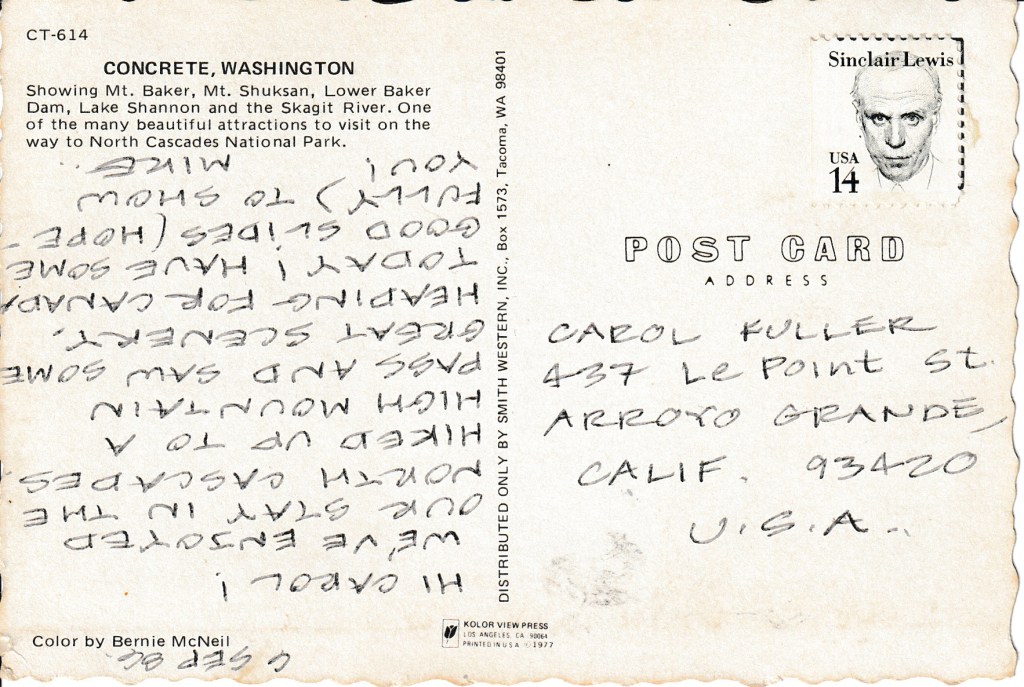 CT-614
CONCRETE, WASHINGTON
Showing Mt. Baker, Mt. Shuksan, Lower Baker
Dam, Lake Shannon and the Skagit River. One
of the many beautiful attractions to visit on the
way to North Cascades National Park.
6 SEP 86
HI CAROL!
WE'VE ENJOYED
OUR STAY IN THE
NORTH CASCADES.
HIKED UP TO A
HIGH MOUNTAIN
PASS AND SAW SOME
GREAT SCENERY.
HEADING FOR CANADA
TODAY! HAVE SOME
GOOD SLIDES (HOPE-
FULLY) TO SHOW
YOU! MIKE
Color by Bernie McNeil
DISTRIBUTED ONLY BY SMITH WESTERN, INC., Box 1573, Tacoma, WA 98401
KOLOR VIEW PRESS
LOS ANGELES, CA 90064
PRINTED IN U S A ©1977
Sinclair Lewis
USA
14
POST CARD
ADDRESS
CAROL FULLER
437 Le Point St.
ARROYO GRANDE,
CALIF. 93420
U.S.A.